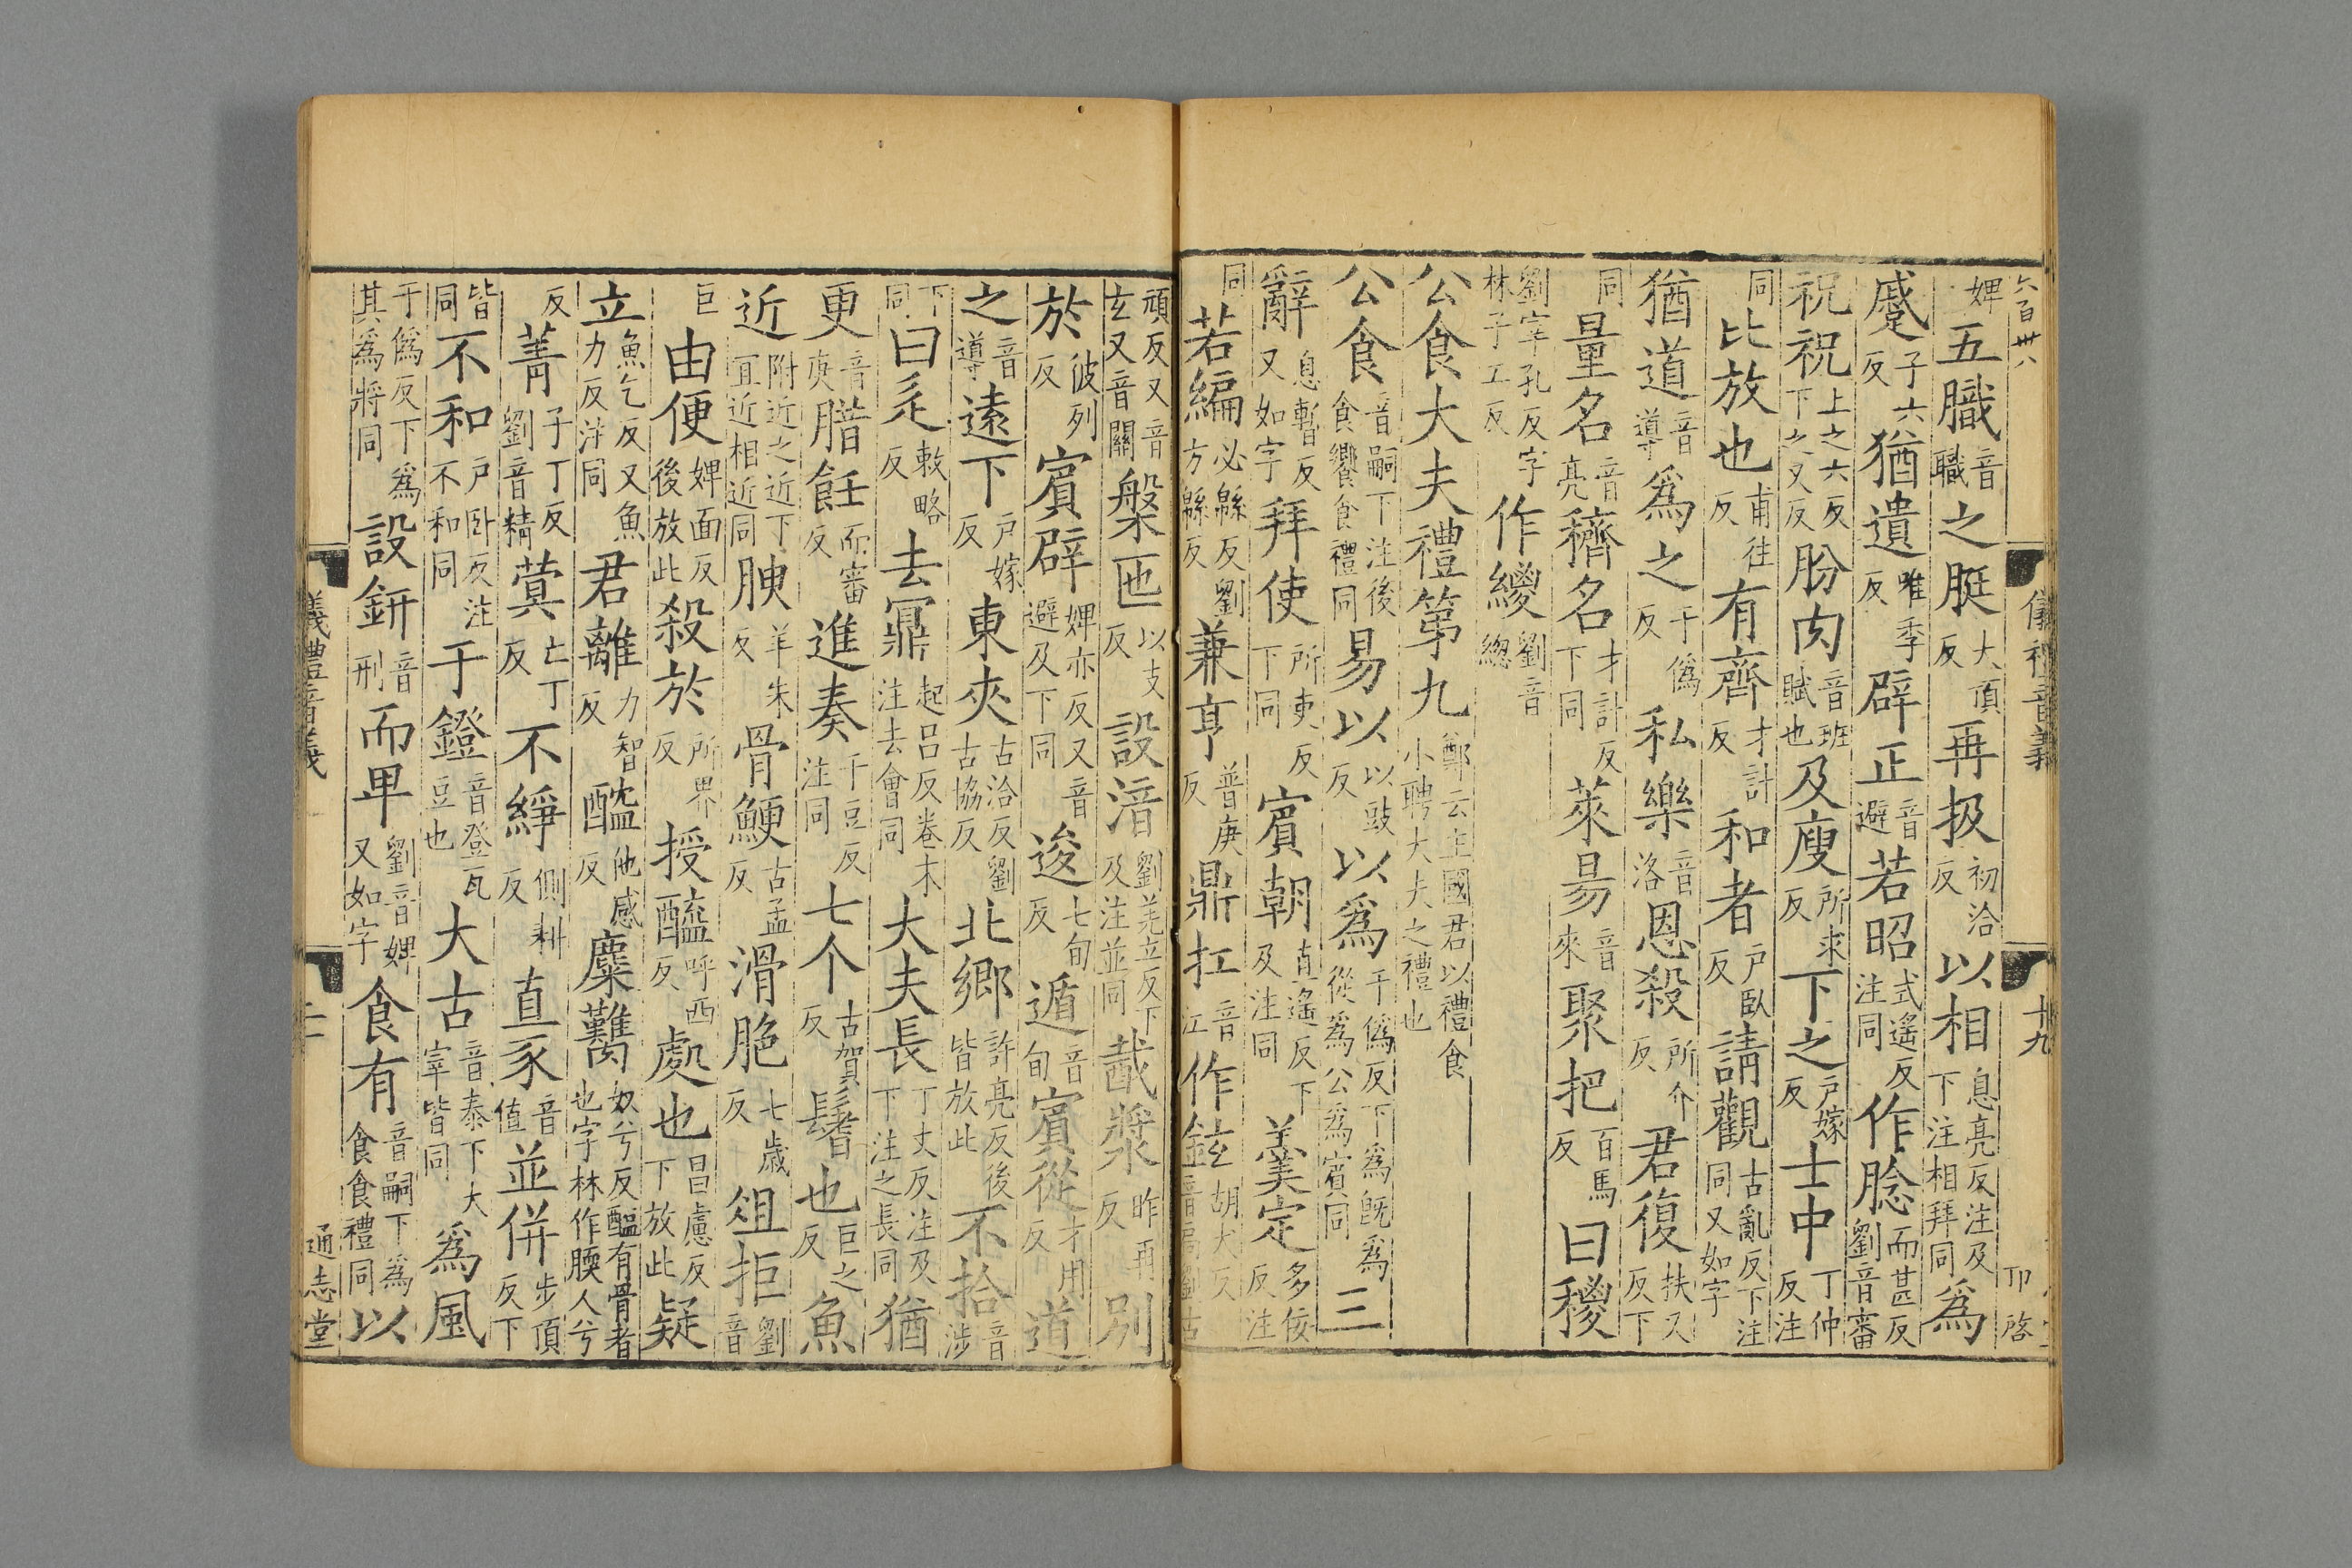 六百卅八
儀禮音義
十九
卬啓
婢五膱音職之脡大頂反再扱初洽反以相息亮反注及下注相拜同爲
蹙子六反猶遺唯季反辟正音避若昭式遙反注同作腍而甚反劉音審
祝祝上之六反下之又反肦肉音班賦也及廋所求反下之戶嫁反士中丁仲反注
同比放也甫往反有齊才計反和者戶臥反請觀古亂反下注同又如字
猶道音導爲之于僞反私樂音洛恩殺所介反君復扶又反下
同量名音亮穧名才計反下同萊昜音來聚把百馬反曰稯
劉宰孔反字林子工反作緵劉音總
公食大夫禮第九鄭云主國君以禮食小聘大夫之禮也
公食音嗣下注後食饗食禮同易以以豉反以爲于僞反下爲旣爲從爲公爲賓同三
辭息暫反又如字拜使所吏反下同賓朝直遙反下及注同羹定多佞反注
同若編必緜反劉方緜反兼亨普庚反鼎扛音江作鉉胡犬反音扃劉古
頑反又音玄又音關槃匜以支反設湆劉羌立反下及注並同胾漿昨再反別
於彼列反賓辟婢亦反又音避及下同逡七旬反遁音旬賓從才用反道
之音導遠下戶嫁反東夾古洽反劉古協反北鄉許亮反後皆放此不拾音涉
下同曰辵敕略反去鼏起呂反卷末注去會同大夫長丁丈反注及下注之長同猶
更音庚腊飪而審反進奏千豆反注同七个古賀反鬐也巨之反魚
近附近之近下宜近相近同腴羊朱反骨鯁古孟反滑脃七歲反俎拒劉音
巨由便婢面反後放此殺於所界反授醯呼西反處也昌慮反下放此疑
立魚乞反又魚力反注同君離力智反醓他感反麋臡奴兮反醢有骨者也字林作腝人兮
反菁子丁反劉音精蓂亡丁反不綪側耕反直豕音值並併步頂反下
皆同不和戶卧反注不和同于鐙音登瓦豆也大古音泰下大宰皆同爲風
于僞反下爲其爲將同設鉶音刑而𤰞劉音婢又如字食有音嗣下爲食食禮同以
儀禮音義
二十
通志堂